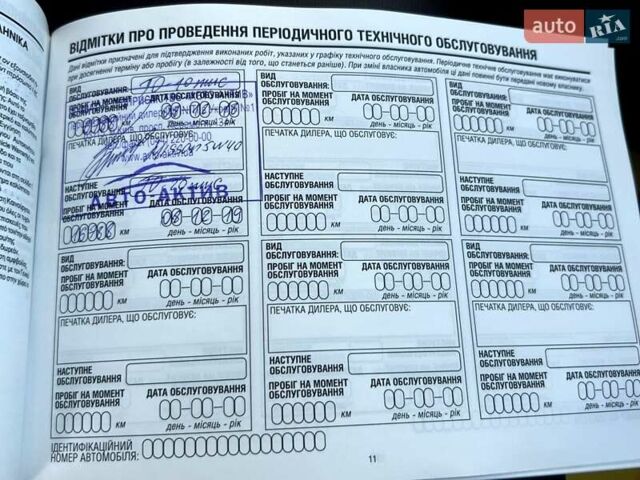 auto RIA.com
ВІДМІТКИ ПРО ПРОВЕДЕННЯ ПЕРІОДИЧНОГО ТЕХНІЧНОГО ОБСЛУГОВУВАННЯ
Дані відмітки призначені для підтвердження виконаних робіт, указаних у графіку технічного обслуговування. Періодичне технічне обслуговування має виконуватися
при досягненні терміну або пробігу (в залежності від того, що станеться раніше). При зміні власника автомобіля ці дані повинні бути передані новому власнику.
ВИД
ОБСЛУГОВУВАННЯ:
ПРОБІГ НА МОМЕНТ
ОБСЛУГОВУВАННЯ
ДАТА ОБСЛУГОВУВАННЯ
км
день - місяць - рік
ПЕЧАТКА ДИЛЕРА, ЩО ОБСЛУГОВУЄ:
АВТО АКТИВ
НАСТУПНЕ
ОБСЛУГОВУВАННЯ:
ПРОБІГ НА МОМЕНТ
ОБСЛУГОВУВАННЯ
ДАТА ОБСЛУГОВУВАННЯ
км
день - місяць - рік
ВИД
ОБСЛУГОВУВАННЯ:
ПРОБІГ НА МОМЕНТ
ОБСЛУГОВУВАННЯ
ДАТА ОБСЛУГОВУВАННЯ
км
день - місяць - рік
ПЕЧАТКА ДИЛЕРА, ЩО ОБСЛУГОВУЄ:
НАСТУПНЕ
ОБСЛУГОВУВАННЯ:
ПРОБІГ НА МОМЕНТ
ОБСЛУГОВУВАННЯ
ДАТА ОБСЛУГОВУВАННЯ
км
день - місяць - рік
ВИД
ОБСЛУГОВУВАННЯ:
ПРОБІГ НА МОМЕНТ
ОБСЛУГОВУВАННЯ
ДАТА ОБСЛУГОВУВАННЯ
км
день - місяць - рік
ПЕЧАТКА ДИЛЕРА, ЩО ОБСЛУГОВУЄ:
НАСТУПНЕ
ОБСЛУГОВУВАННЯ:
ПРОБІГ НА МОМЕНТ
ОБСЛУГОВУВАННЯ
ДАТА ОБСЛУГОВУВАННЯ
км
день - місяць - рік
ВИД
ОБСЛУГОВУВАННЯ:
ПРОБІГ НА МОМЕНТ
ОБСЛУГОВУВАННЯ
ДАТА ОБСЛУГОВУВАННЯ
км
день - місяць - рік
ПЕЧАТКА ДИЛЕРА, ЩО ОБСЛУГОВУЄ:
НАСТУПНЕ
ОБСЛУГОВУВАННЯ:
ПРОБІГ НА МОМЕНТ
ОБСЛУГОВУВАННЯ
ДАТА ОБСЛУГОВУВАННЯ
км
день - місяць - рік
ВИД
ОБСЛУГОВУВАННЯ:
ПРОБІГ НА МОМЕНТ
ОБСЛУГОВУВАННЯ
ДАТА ОБСЛУГОВУВАННЯ
км
день - місяць - рік
ПЕЧАТКА ДИЛЕРА, ЩО ОБСЛУГОВУЄ:
НАСТУПНЕ
ОБСЛУГОВУВАННЯ:
ПРОБІГ НА МОМЕНТ
ОБСЛУГОВУВАННЯ
ДАТА ОБСЛУГОВУВАННЯ
км
день - місяць - рік
ВИД
ОБСЛУГОВУВАННЯ:
ПРОБІГ НА МОМЕНТ
ОБСЛУГОВУВАННЯ
ДАТА ОБСЛУГОВУВАННЯ
км
день - місяць - рік
ПЕЧАТКА ДИЛЕРА, ЩО ОБСЛУГОВУЄ:
НАСТУПНЕ
ОБСЛУГОВУВАННЯ:
ПРОБІГ НА МОМЕНТ
ОБСЛУГОВУВАННЯ
ДАТА ОБСЛУГОВУВАННЯ
км
день - місяць - рік
ІДЕНТИФІКАЦІЙНИЙ
НОМЕР АВТОМОБІЛЯ:
11